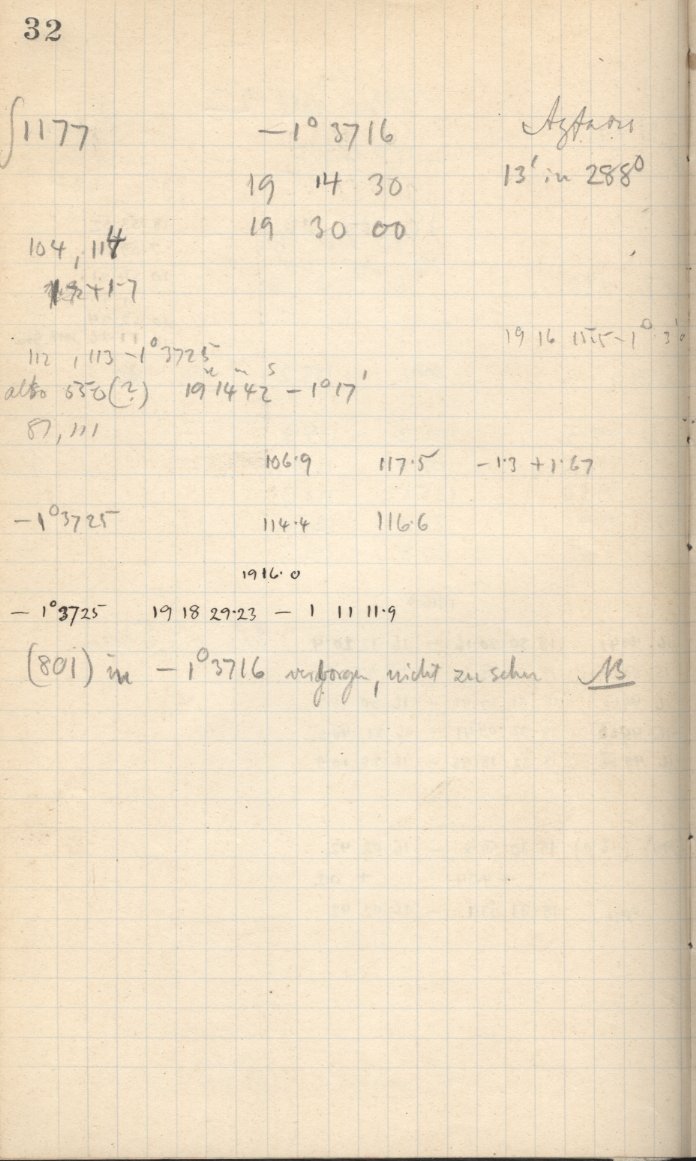 32
∫1177 −1° 3716
13' in 288°
19 14 30
19 30 00
104, 114
+1·7
19 16 15·5 −1° 3'
112, 113 −1° 3725
also 550(?) 19ʰ 14ᵐ 42ˢ −1° 17'
87, 111
106·9 117·5 −1·3 +1·67
−1° 3725 114·4 116·6
1916·0
− 1° 3725 19 18 29·23 − 1 11 11·9
(801) in −1° 3716 verborgen, nicht zu sehen NB